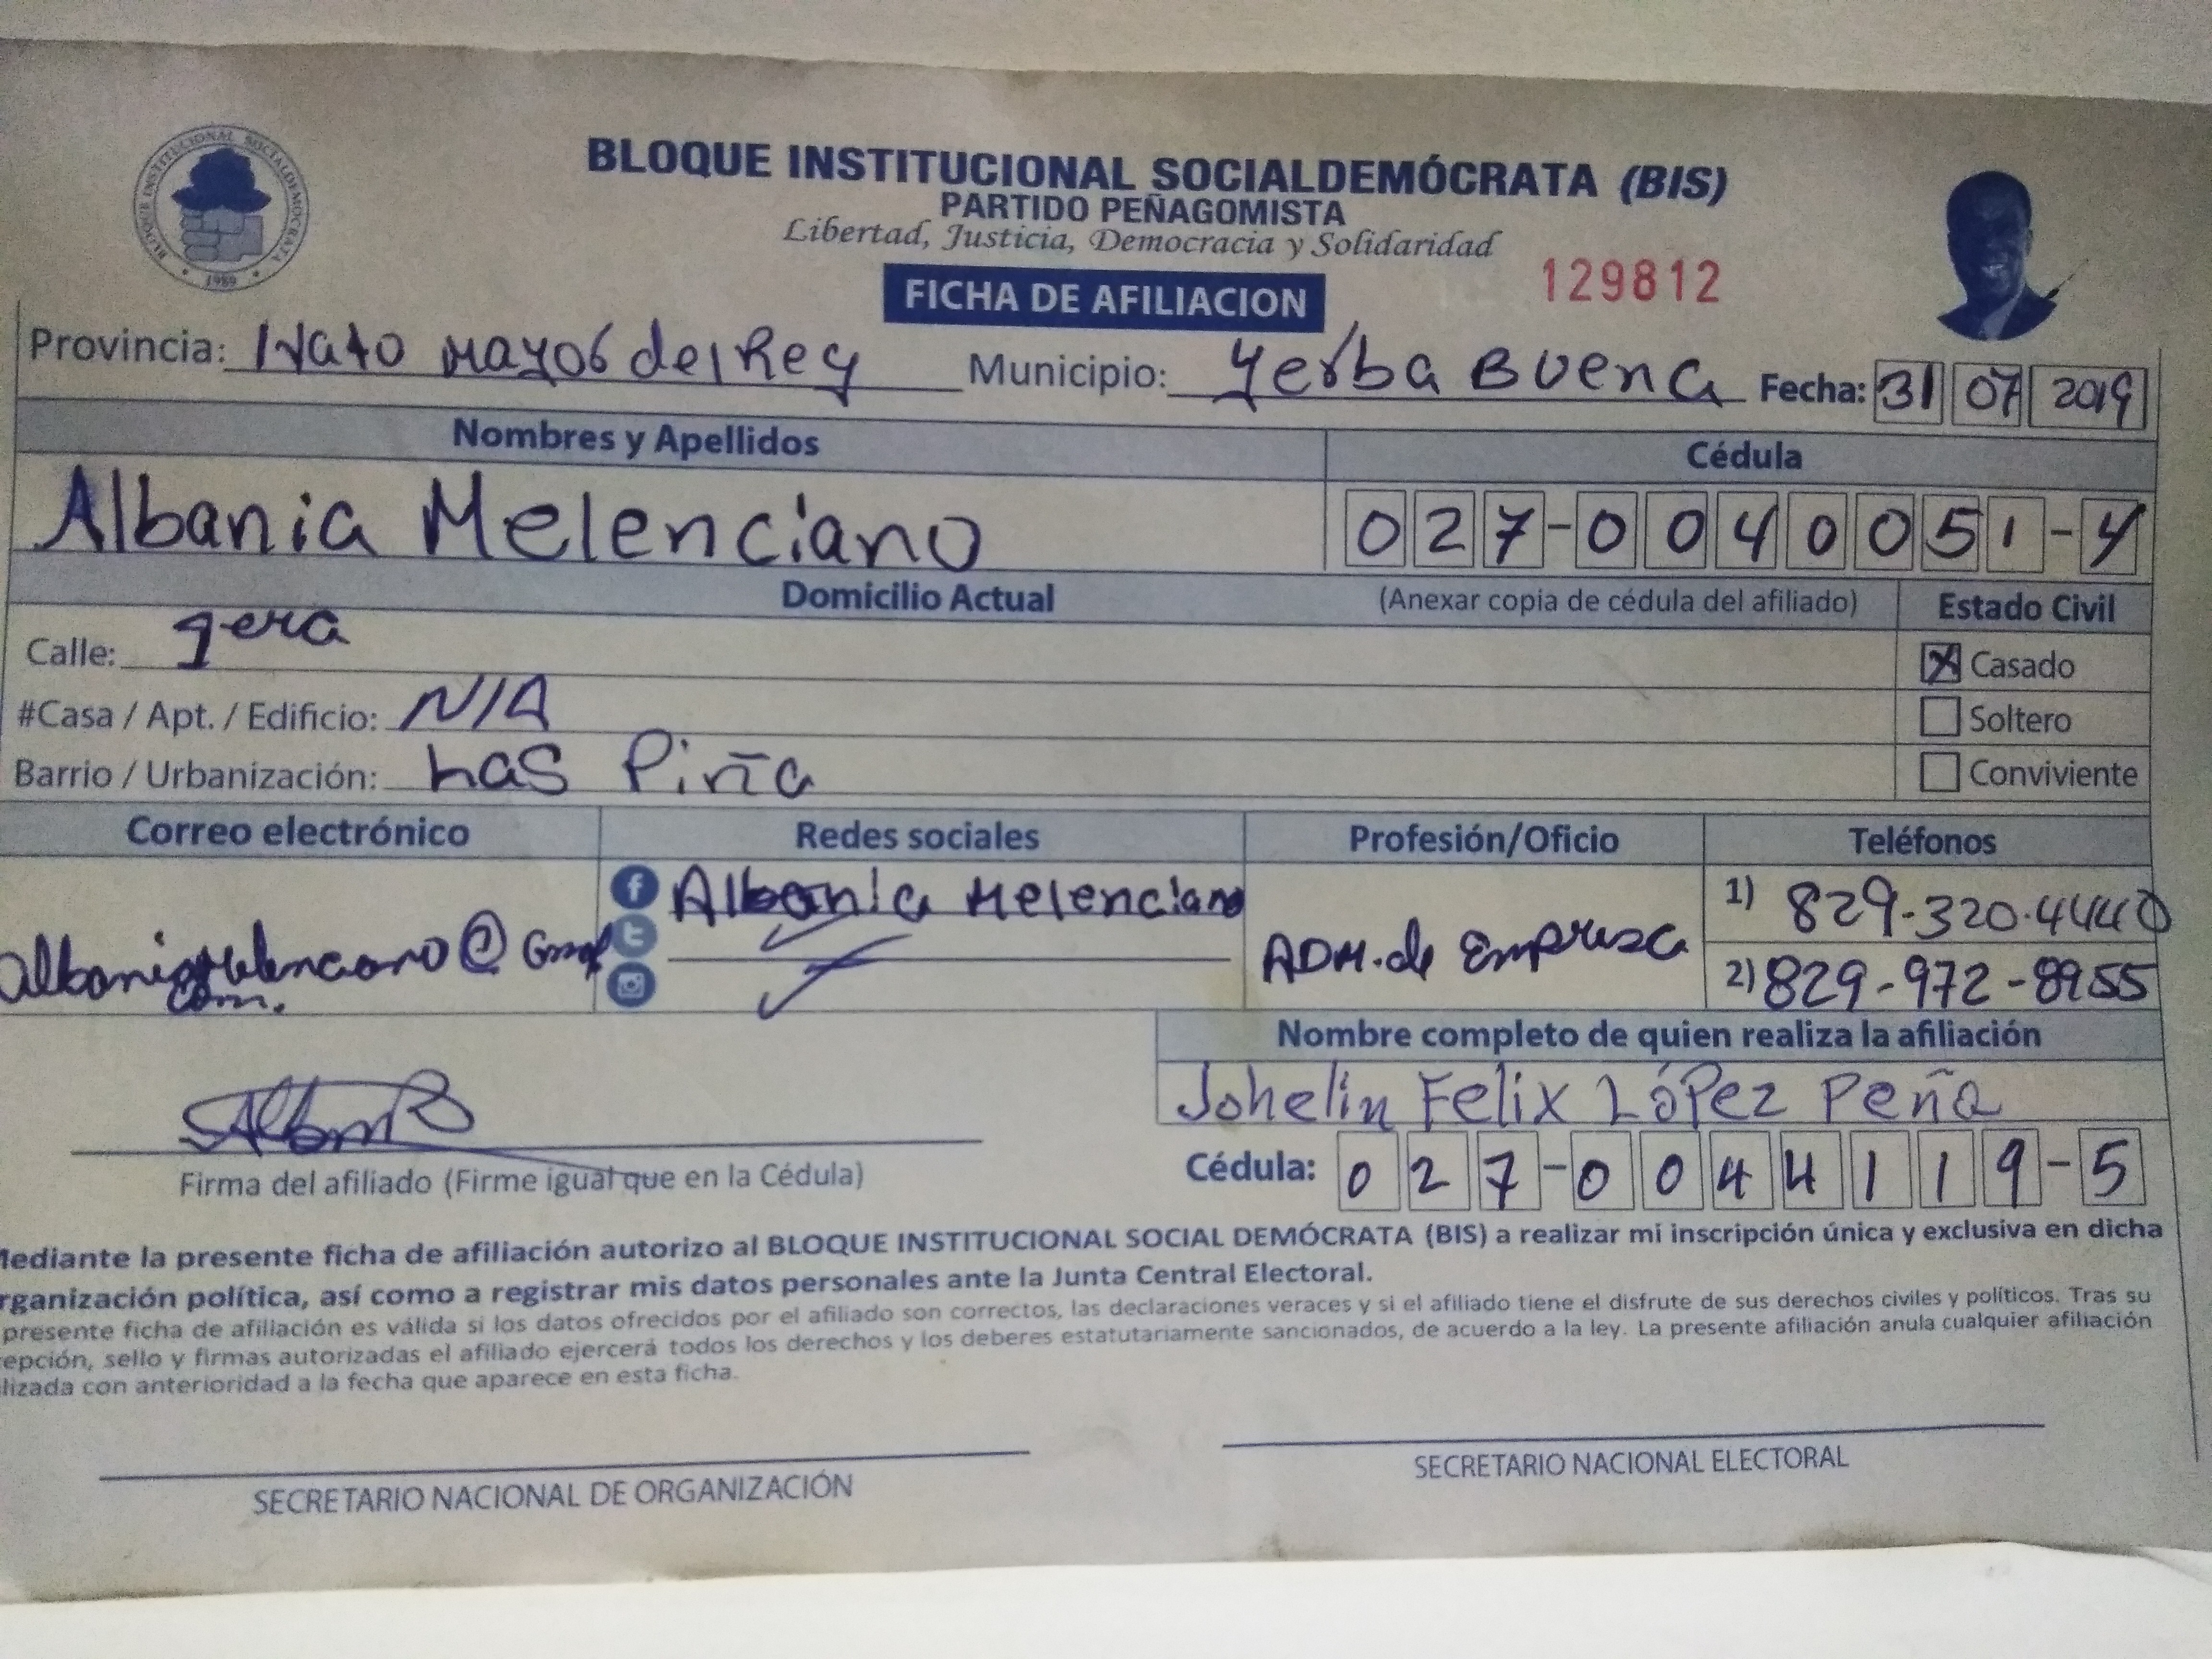 BLOQUE INSTITUCIONAL SOCIALDEMOCRATA
1989
BLOQUE INSTITUCIONAL SOCIALDEMÓCRATA (BIS)
PARTIDO PEÑAGOMISTA
Libertad, Justicia, Democracia y Solidaridad
FICHA DE AFILIACION 129812
Provincia: Hato mayor del Rey Municipio: Yerba Buena Fecha: 31 07 2019
Nombres y Apellidos Cédula
Albania Melenciano 027-0040051-4
Domicilio Actual (Anexar copia de cédula del afiliado) Estado Civil
Calle: 9era Casado
#Casa / Apt. / Edificio: N/A Soltero
Barrio / Urbanización: Las Piña Conviviente
Correo electrónico Redes sociales Profesión/Oficio Teléfonos
Albania Melenciano 1) 829-320-4440
ADM. de Empresa 2) 829-972-8955
com.
Nombre completo de quien realiza la afiliación
Johelin Felix López Peña
Firma del afiliado (Firme igual que en la Cédula) Cédula: 027-0044119-5
Mediante la presente ficha de afiliación autorizo al BLOQUE INSTITUCIONAL SOCIAL DEMÓCRATA (BIS) a realizar mi inscripción única y exclusiva en dicha
rganización política, así como a registrar mis datos personales ante la Junta Central Electoral.
presente ficha de afiliación es válida si los datos ofrecidos por el afiliado son correctos, las declaraciones veraces y si el afiliado tiene el disfrute de sus derechos civiles y políticos. Tras su
epción, sello y firmas autorizadas el afiliado ejercerá todos los derechos y los deberes estatutariamente sancionados, de acuerdo a la ley. La presente afiliación anula cualquier afiliación
lizada con anterioridad a la fecha que aparece en esta ficha.
SECRETARIO NACIONAL DE ORGANIZACIÓN SECRETARIO NACIONAL ELECTORAL